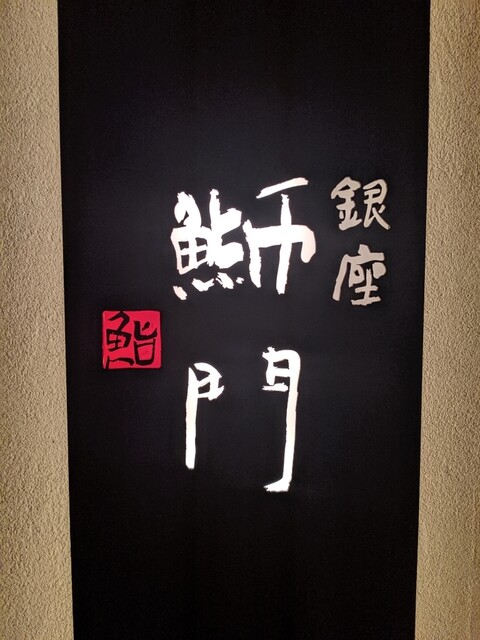 銀座
鰤門
鮨